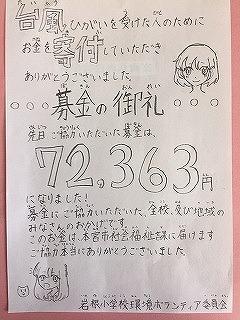 台風でひがいを受けた人のために
お金を寄付していただき
ありがとうございました。
募金の御礼
先日ご協力いただいた募金は、
72,363円
になりました!
募金にご協力いただいた、全校、及び地域の
みなさんのおかげです。
このお金は、本宮市社会福祉課に届けます
ご協力本当にありがとうございました。
岩根小学校環境ボランティア委員会